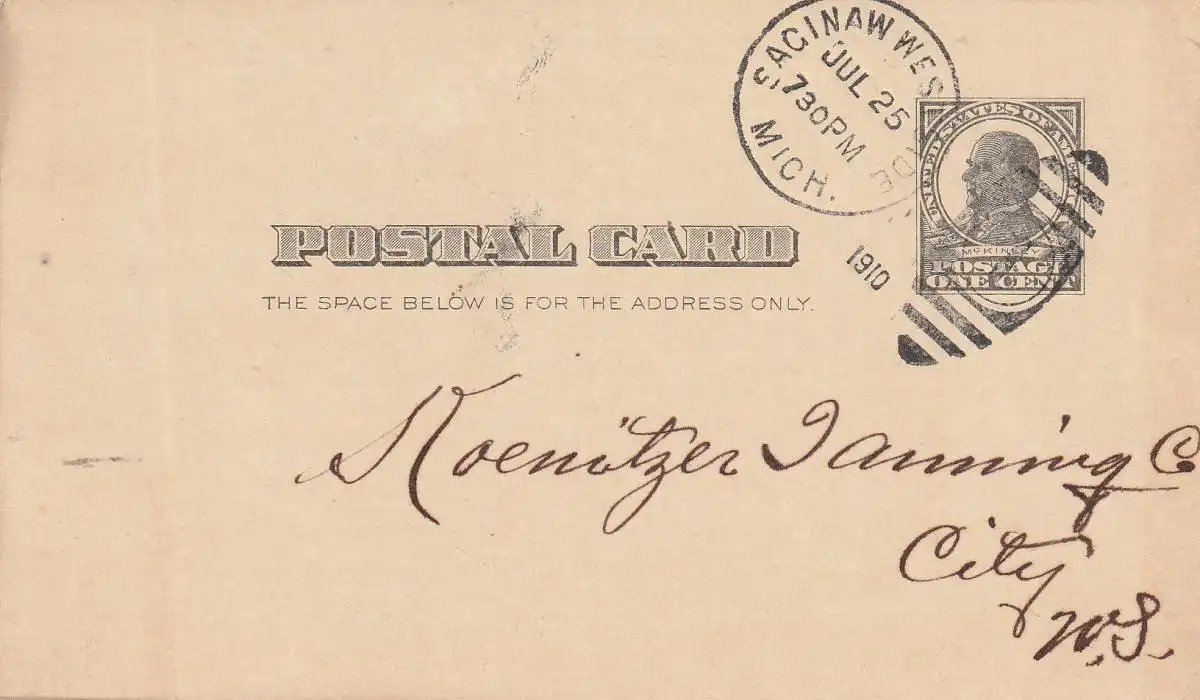 SAGINAW WES DE
JUL 25
730PM
MICH.
1910
UNITED STATES OF AMER
MCKINLEY
POSTAGE
ONE CENT
POSTAL CARD
THE SPACE BELOW IS FOR THE ADDRESS ONLY.
Koenitzer Tanning Co
City
W.S.